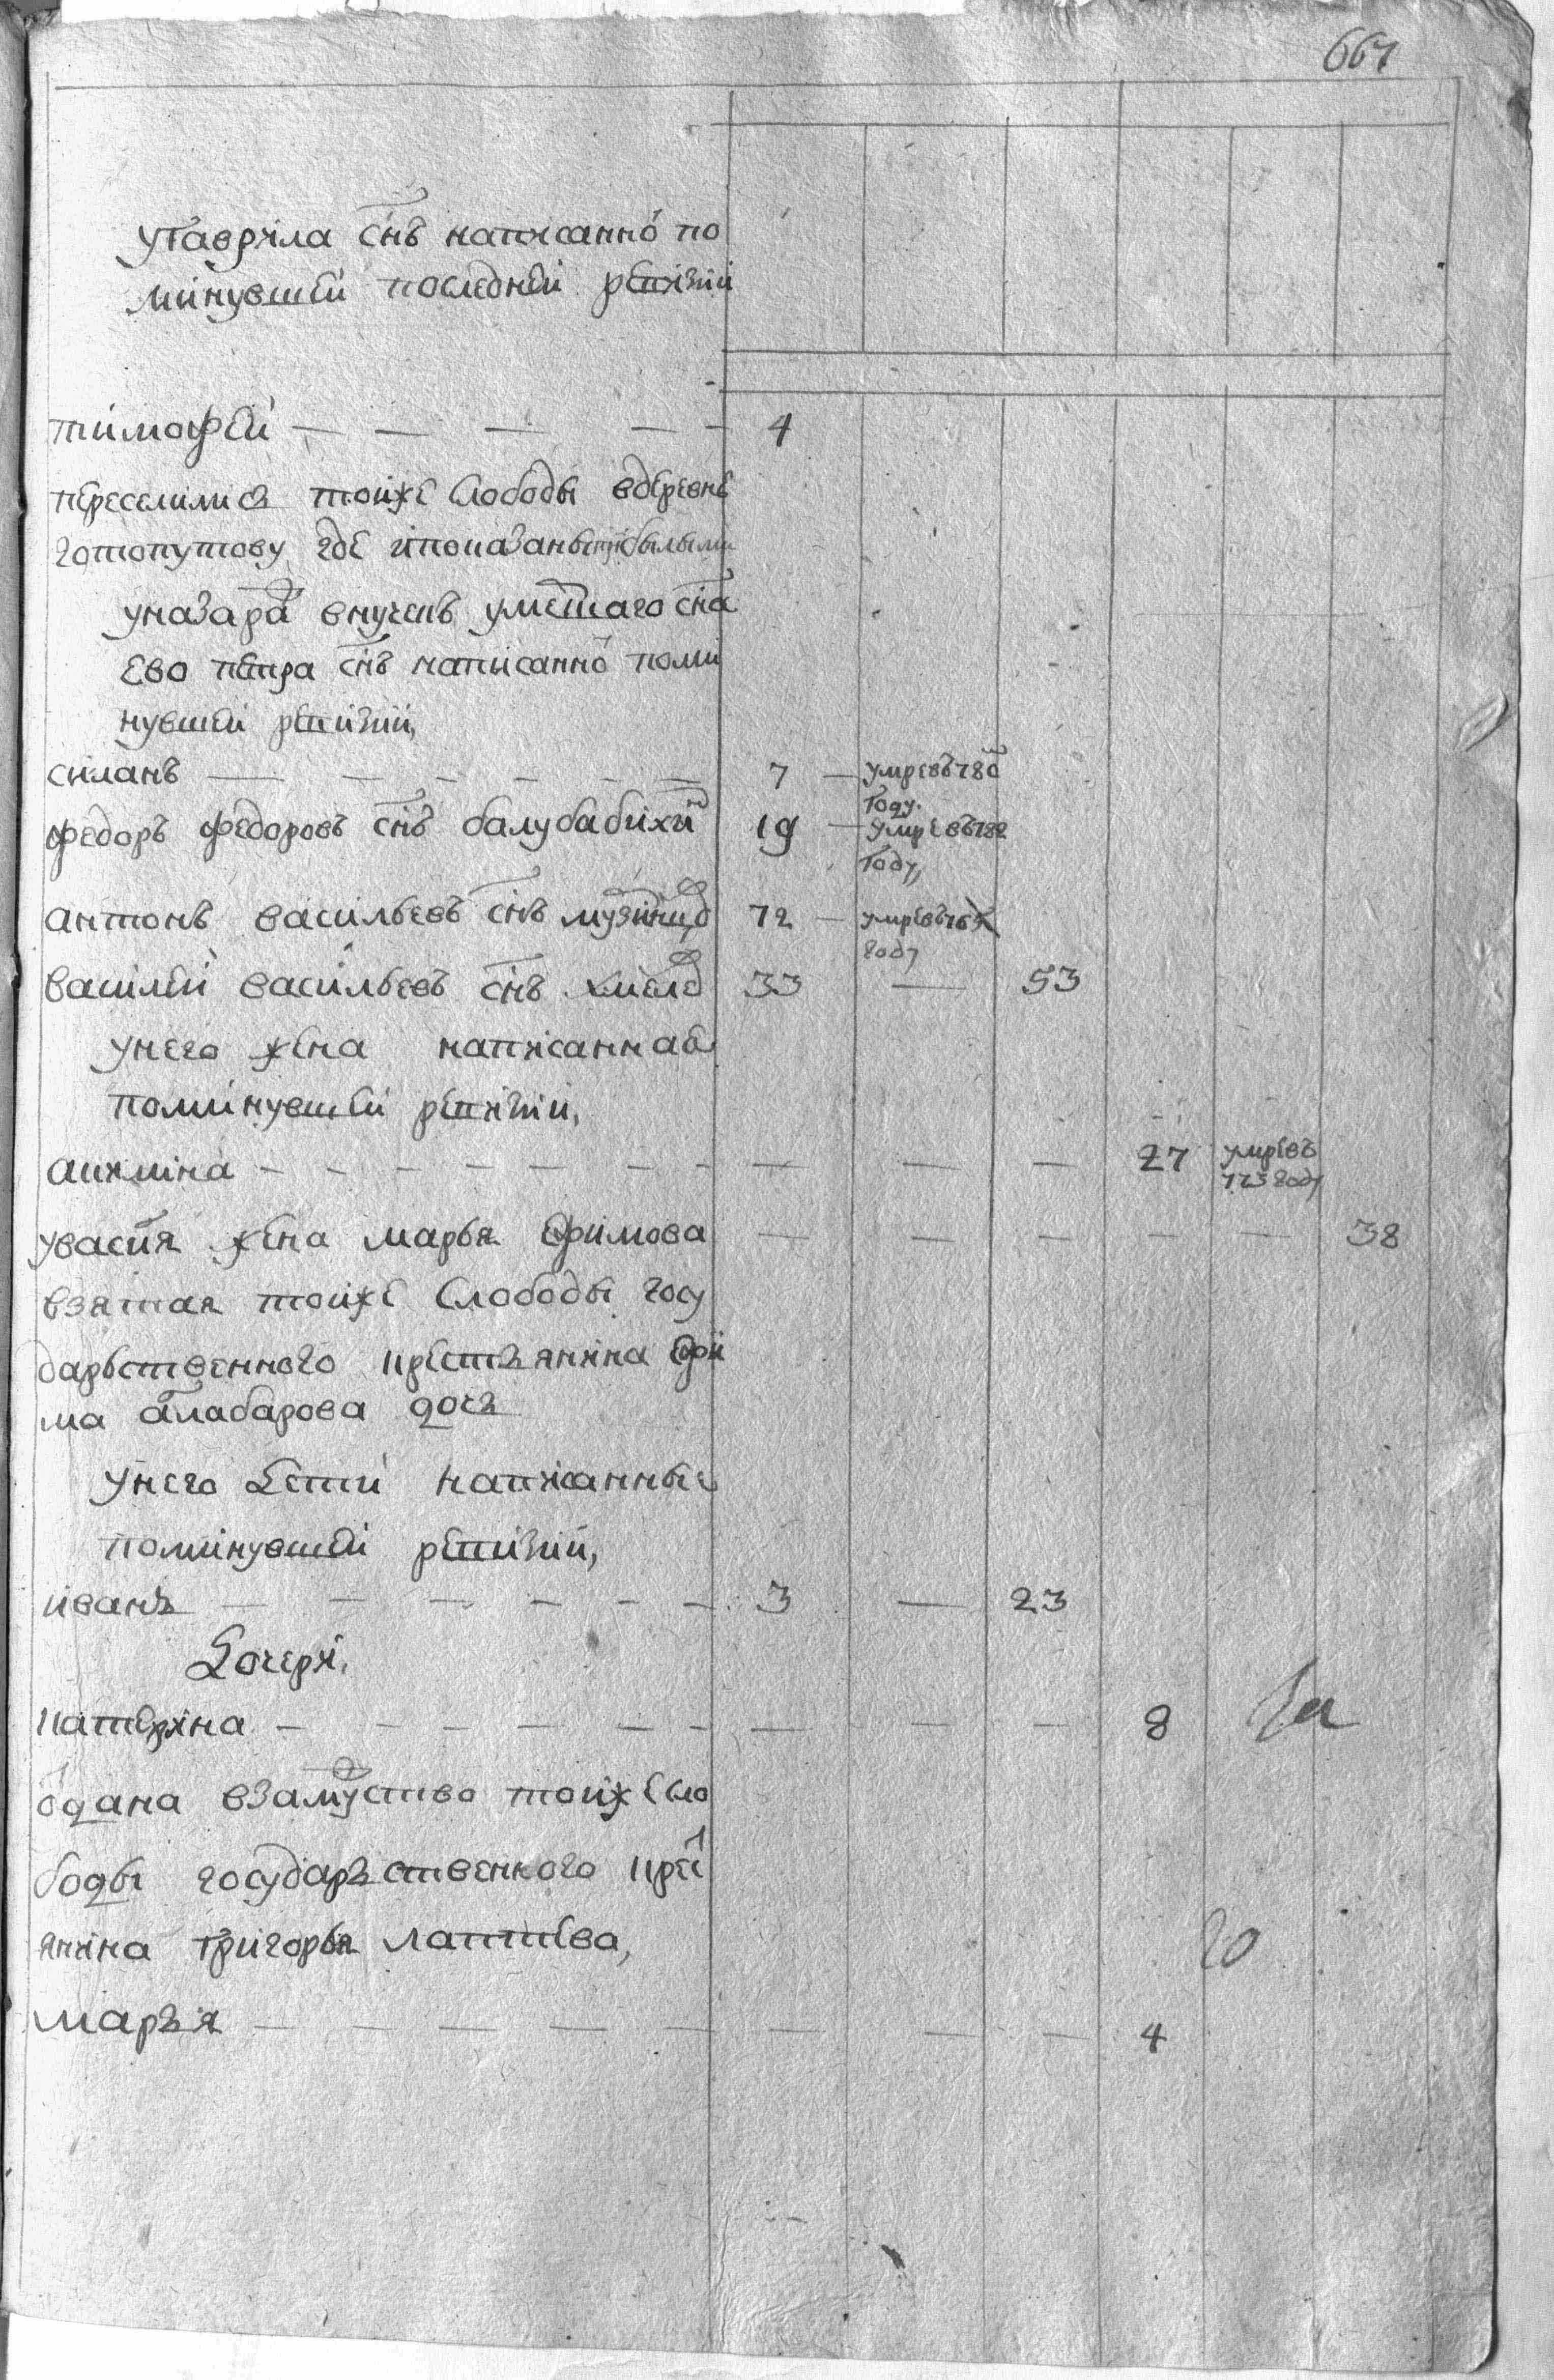 667
угаврила снъ написанно по
минувшей последней ревизии
тимофей — — — — — 4
переселились тойже слободы вдеревню
готопутову где ипоказаны прибылыми
уназара внучекъ умершаго сна
ево петра снъ написанно поми
нувшей ревизии,
силанъ — — — — — — 7 — умре въ 780
году.
федоръ федоровъ снъ балубабихи 19 — умре въ 782
году,
антонъ васильевъ снъ 72 — умре въ
году
василей васильевъ снъ 33 — 53
унего жена написанная
поминувшей ревизии,
акилина — — — — — — — — — — 27 умре въ
773 году
увасиля жена марья ефимова — — — — — 38
взятая тойже слободы госу
дарьственного крестьянина ефи
ма алабарова дочь
унего дети написанные
поминувшей ревизии,
иванъ — — — — — — 3 — 23
дочери,
катерина — — — — — — — — — 8
одана взамуство тойже сло
боды государьственного крес
янина григорья лаптева,
20
марья — — — — — — — — 4